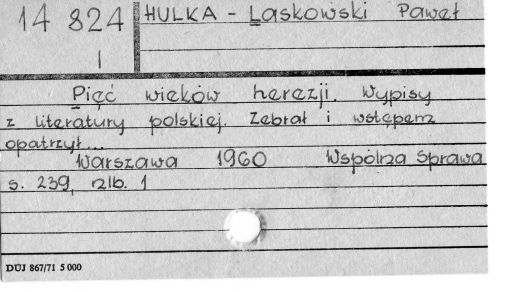 14 824
I
HULKA - Laskowski Paweł
Pięć wieków herezji. Wypisy
z literatury polskiej. Zebrał i wstępem
opatrzył...
Warszawa 1960 Wspólna Sprawa
s. 239, nlb. 1
DUJ 867/71 5 000